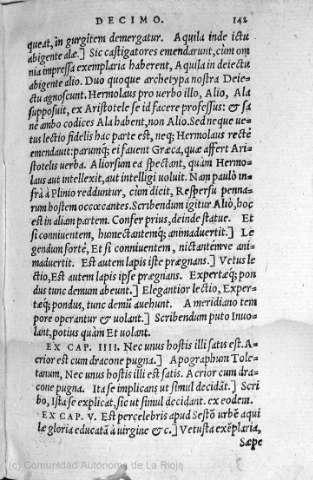 DECIMO. 142
queat, in gurgitem demergatur. Aquila inde ictu
abigente alæ.] Sic castigatores emendarunt, cùm om
nia impressa exemplaria haberent, Aquila in deiectu
abigente alio. Duo quoque archetypa nostra Deie-
ctu agnoscunt. Hermolaus pro verbo illo, Alio, Ala
supposuit, ex Aristotele se id facere professus: & sa
nè ambo codices Ala habent, non Alio. Sed neque ue-
tus lectio fidelis hac parte est, neq; Hermolaus rectè
emendauit: parumq; ei fauent Græca, quæ affert Ari-
stotelis uerba. Aliorsum ea spectant, quàm Hermo-
laus aut intellexit, aut intelligi uoluit. Nam paulò in-
frà à Plinio redduntur, cùm dicit, Respersu penna-
rum hostem occæcantes. Scribendum igitur Aliò, hoc
est in aliam partem. Confer prius, deinde statue. Et
si conniuentem, humectantemq; animaduertit.] Le
gendum fortè, Et si conniuentem, nictantémve ani-
maduertit. Est autem lapis iste prægnans.] Vetus le
ctio, Est autem lapis ipse prægnans. Expertæq; pon
dus tunc demum abeunt.] Elegantior lectio, Exper-
tæq; pondus, tunc demũ auehunt. A meridiano tem
pore operantur & uolant.] Scribendum puto Inuo-
lant, potius quàm Et uolant.
EX CAP. IIII. Nec unus hostis illi satis est. A-
crior est cum dracone pugna.] Apographon Tole-
tanum, Nec unus hostis illi est satis. Acrior cum dra-
cone pugna. Ita se implicans ut simul decidãt.] Scri
bo, Ista se explicat, sic ut simul decidant. ex eodem.
EX CAP. V. Est percelebris apud Sestõ urbẽ aqui
læ gloria educatã à uirgine & c.] Vetusta exẽplaria,
Sæpe
(c) Comunidad Autónoma de La Rioja